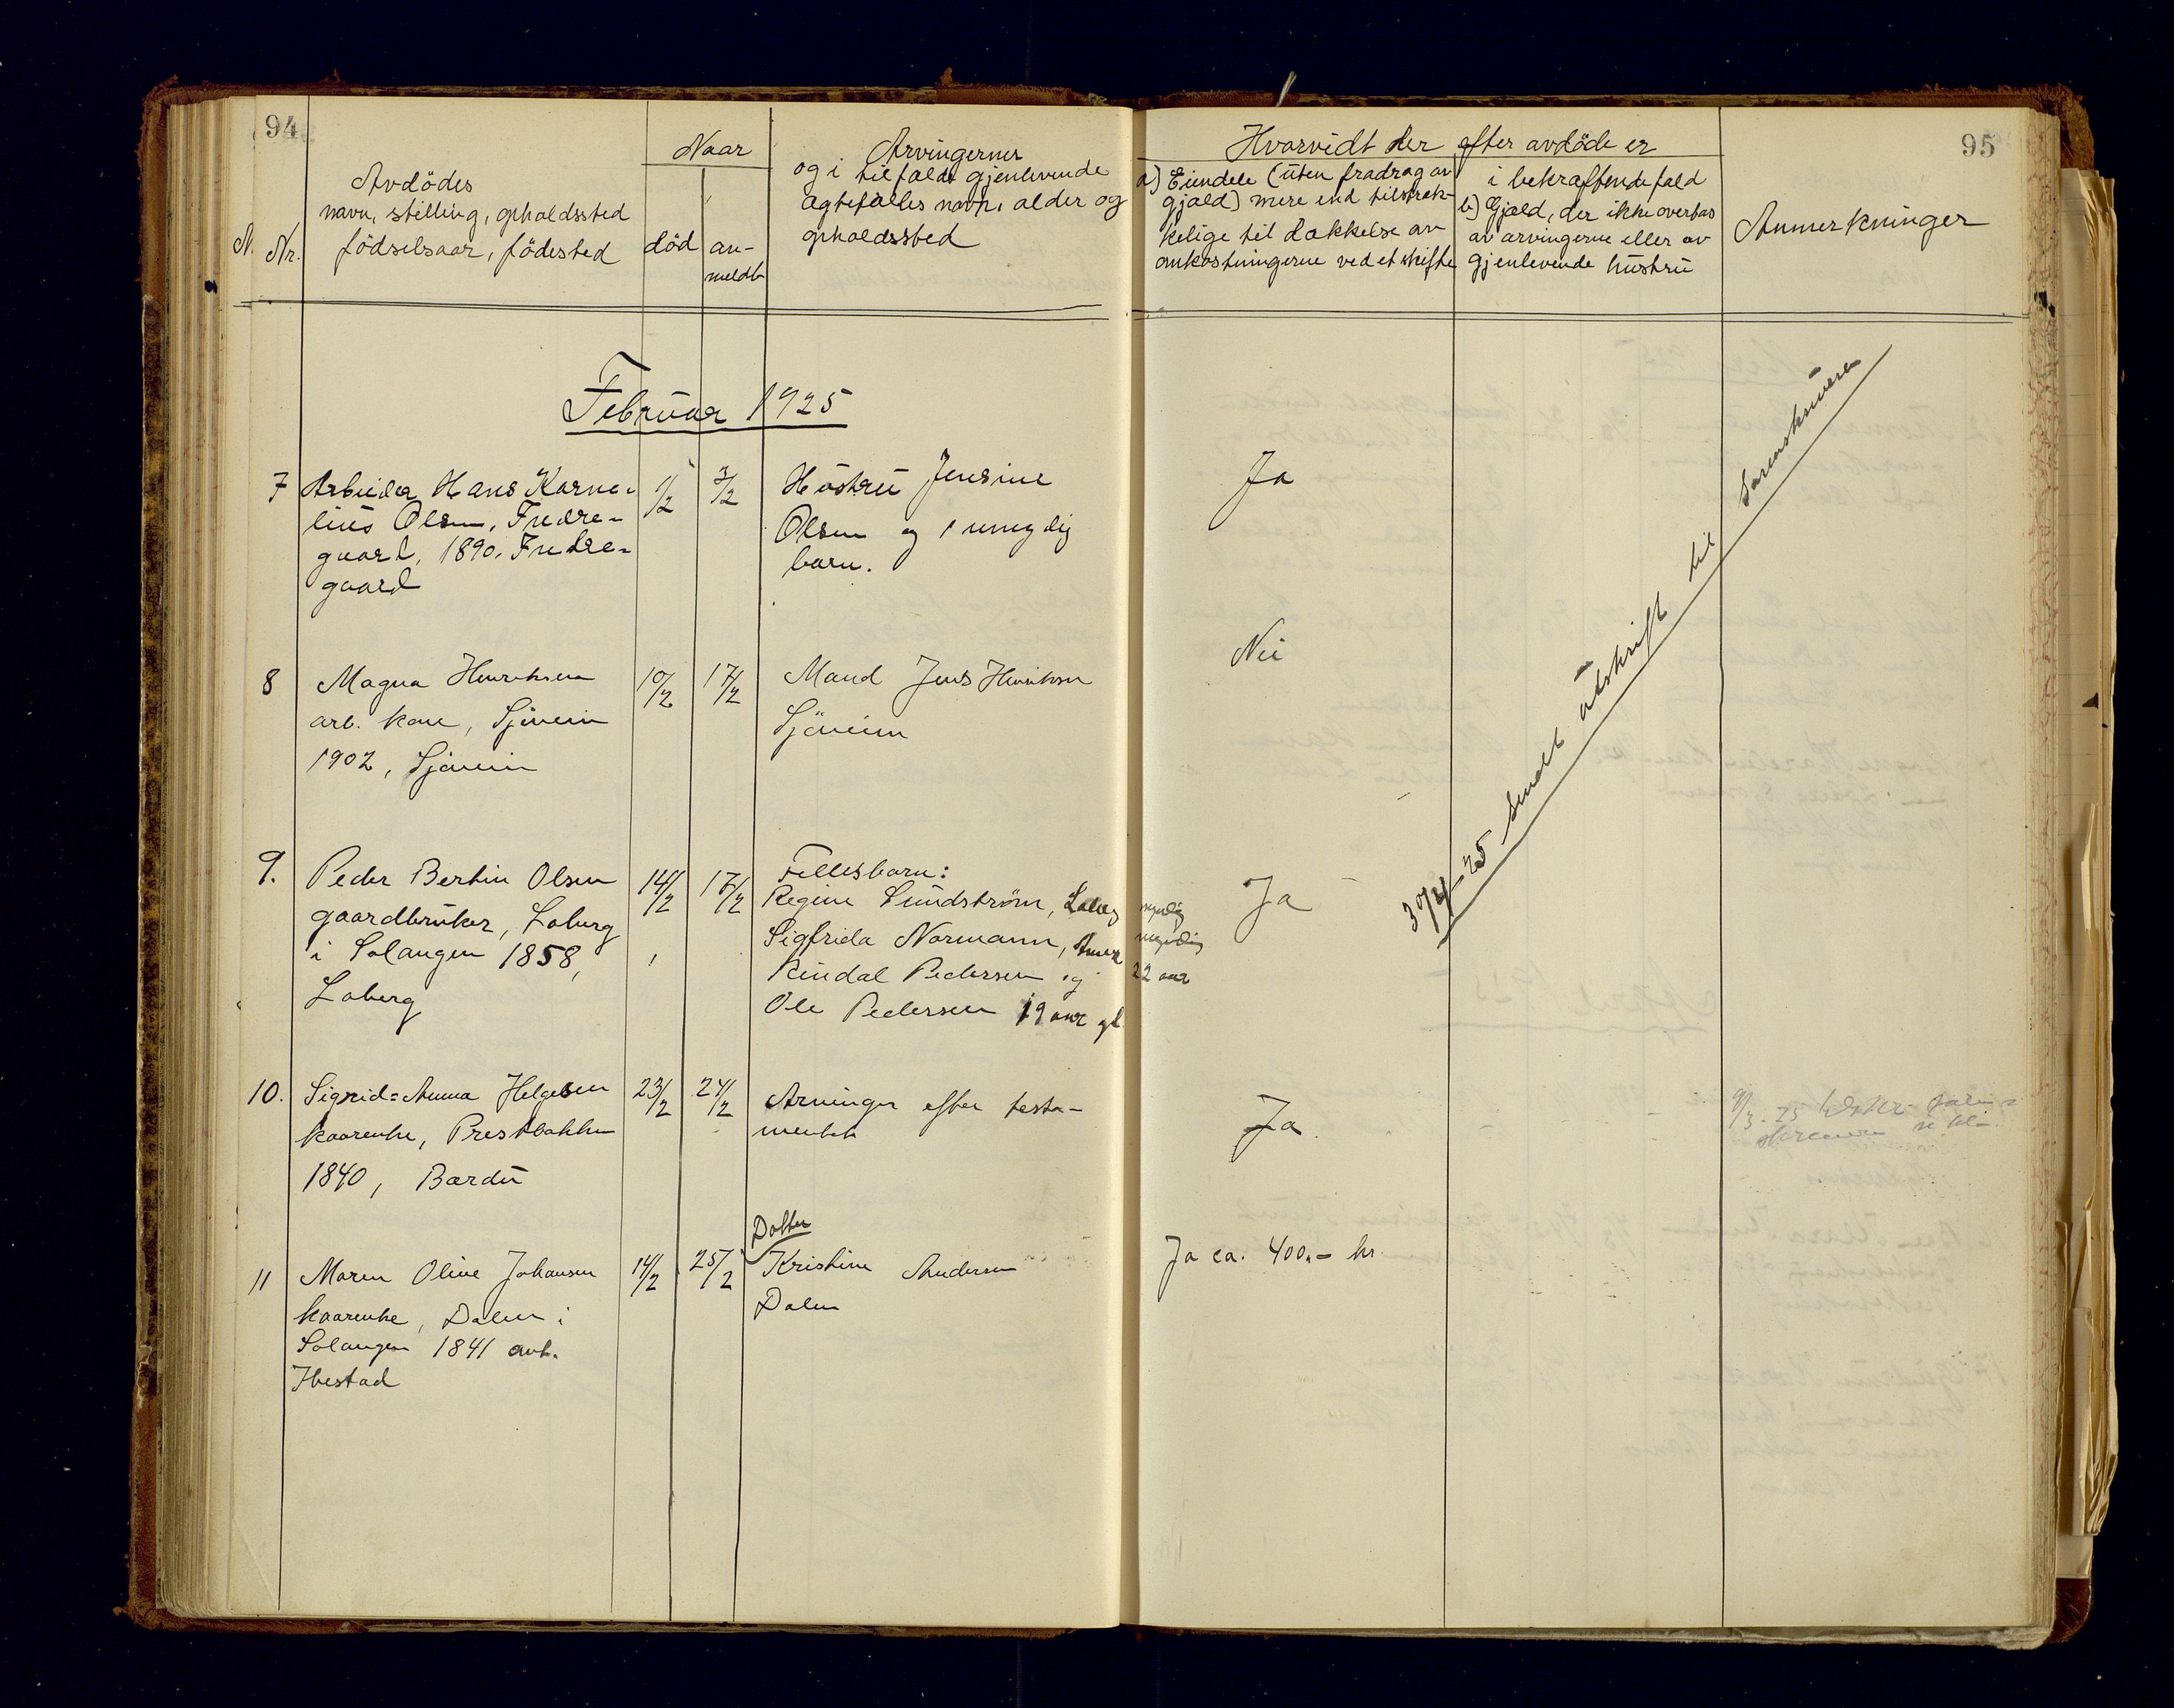 94
95
Naar
Nr.
Avdödes
navn, stilling, opholdssted
födselsaar, födested
död
an-
meldt
Arvingernes
og i tilfælde gjenlevende
ægtefælles navn, alder og
opholdssted
Hvorvidt der efter avdöde er
a) Eiendele (uten fradrag av
gjæld) mere end tilstræk-
kelige til dækkelse av
omkostningerne ved et skifte
i bekræftende fald
b) Gjæld, der ikke overtas
av arvingerne eller av
gjenlevende hustru
Anmerkninger
Februar 1925
7
Arbeider Hans Karne-
lius Olsen, Fredre-
gaard, 1890, Fredre-
gaard
1/2
3/2
Hustru Jensine
Olsen og 1 umyndig
barn.
Ja
8
Magna Henriksen
arb. kone, Sjøveien
1902, Sjøveien
10/2
17/2
Mand Jens Henriksen
Sjøveien
Nei
9.
Peder Bertin Olsen
gaardbruker, Løberg
i Salangen 1858,
Løberg
14/2
17/2
Fellesbarn:
Regine Lundström, Løberg myndig
Sigfrida Normann, Amerk myndig
Reidal Pedersen og 22 aar
Ole Pedersen 19 aar gl.
Ja
30/4-25 sendt utskrift til sorenskriveren
10.
Sigrid=Anna Helgesen
kaarenke, Prestbakken
1840, Bardu
23/2
24/2
Arvinger efter testa-
mentet
Ja.
9/3.25
11
Maren Olive Johansen
kaarenke, Dalen i
Salangen 1841 ant.
Ibestad
14/2
25/2
Datter
Kristine Andersen
Dalen
Ja ca. 400.- kr.